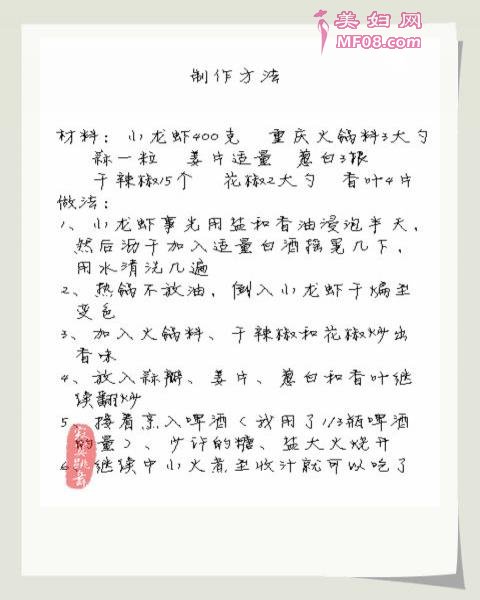 美妇网
MF08.com
制作方法
材料：小龙虾400克 重庆火锅料3大勺
蒜一粒 姜片适量 葱白3根
干辣椒15个 花椒2大勺 香叶4片
做法：
1、小龙虾事先用盐和香油浸泡半天，
然后沥干加入适量白酒摇晃几下，
用水清洗几遍
2、热锅不放油，倒入小龙虾干煸至
变色
3、加入火锅料、干辣椒和花椒炒出
香味
4、放入蒜瓣、姜片、葱白和香叶继
续翻炒
5、接着烹入啤酒（我用了1/3瓶啤酒
的量）、少许的糖、盐大火烧开
6、继续中小火煮至收汁就可以吃了